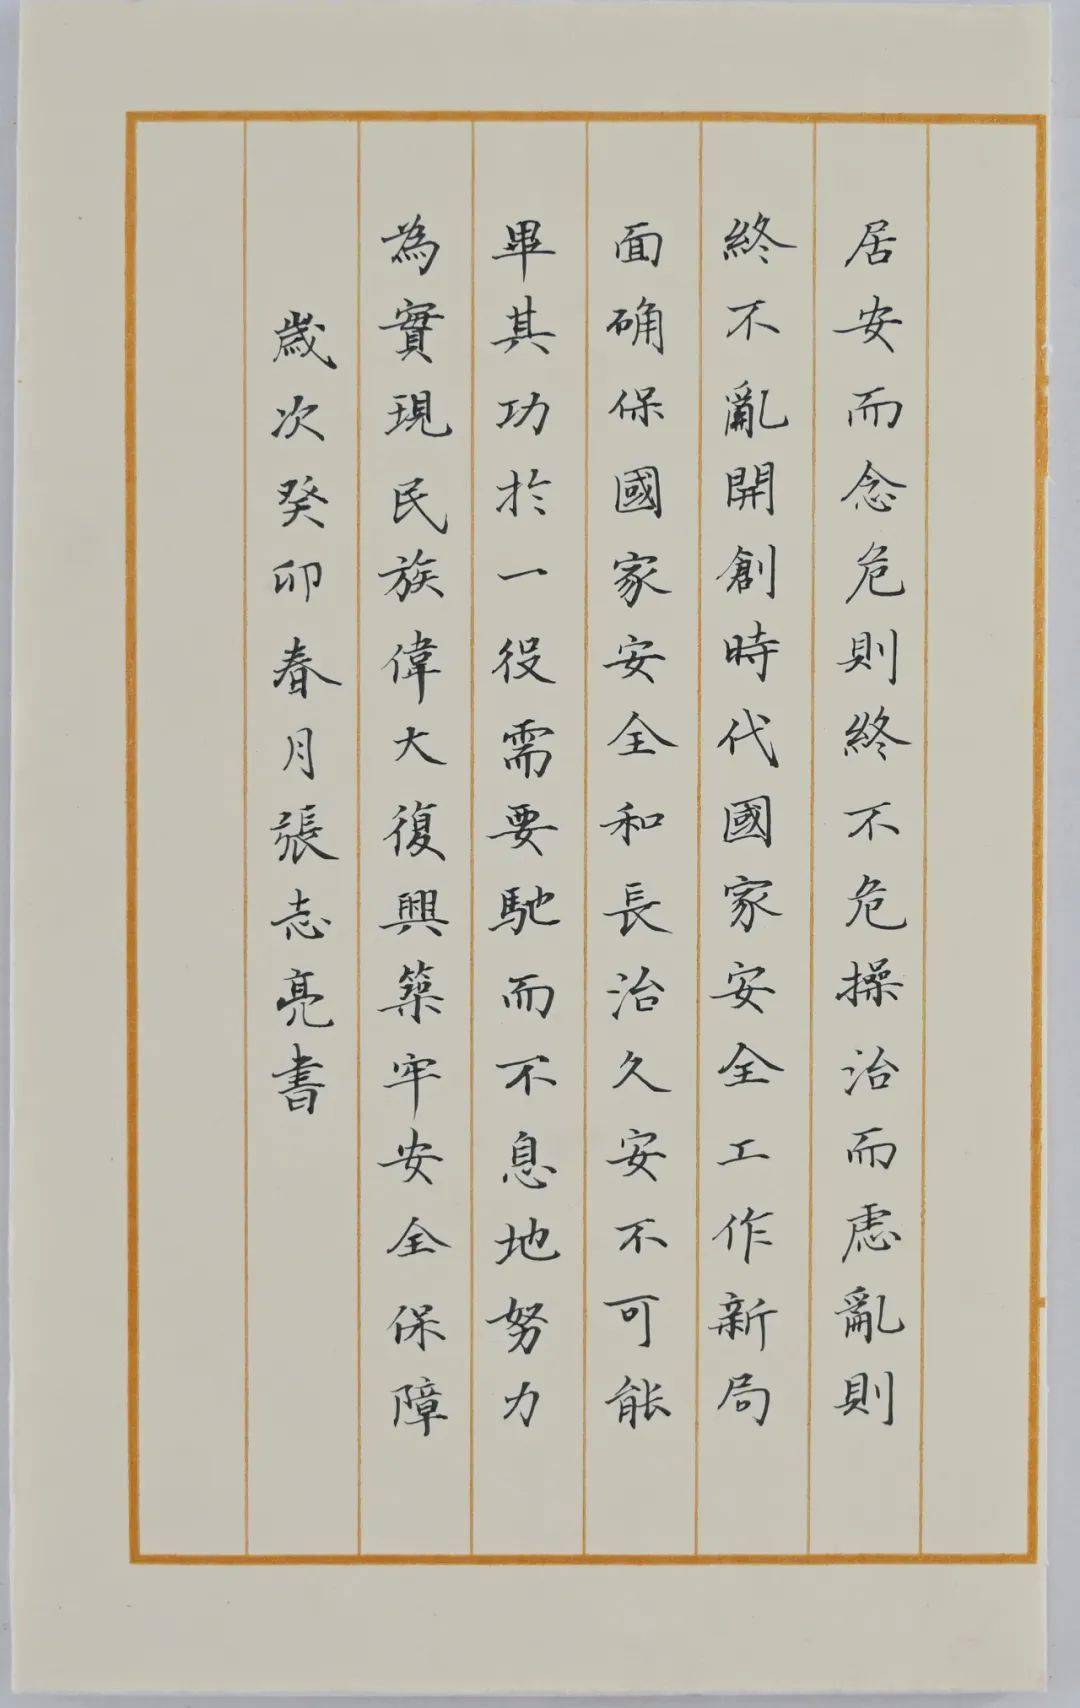 居安而念危則終不危操治而慮亂則
終不亂開創時代國家安全工作新局
面确保國家安全和長治久安不可能
畢其功於一役需要馳而不息地努力
為實現民族偉大復興築牢安全保障
歲次癸卯春月張志亮書